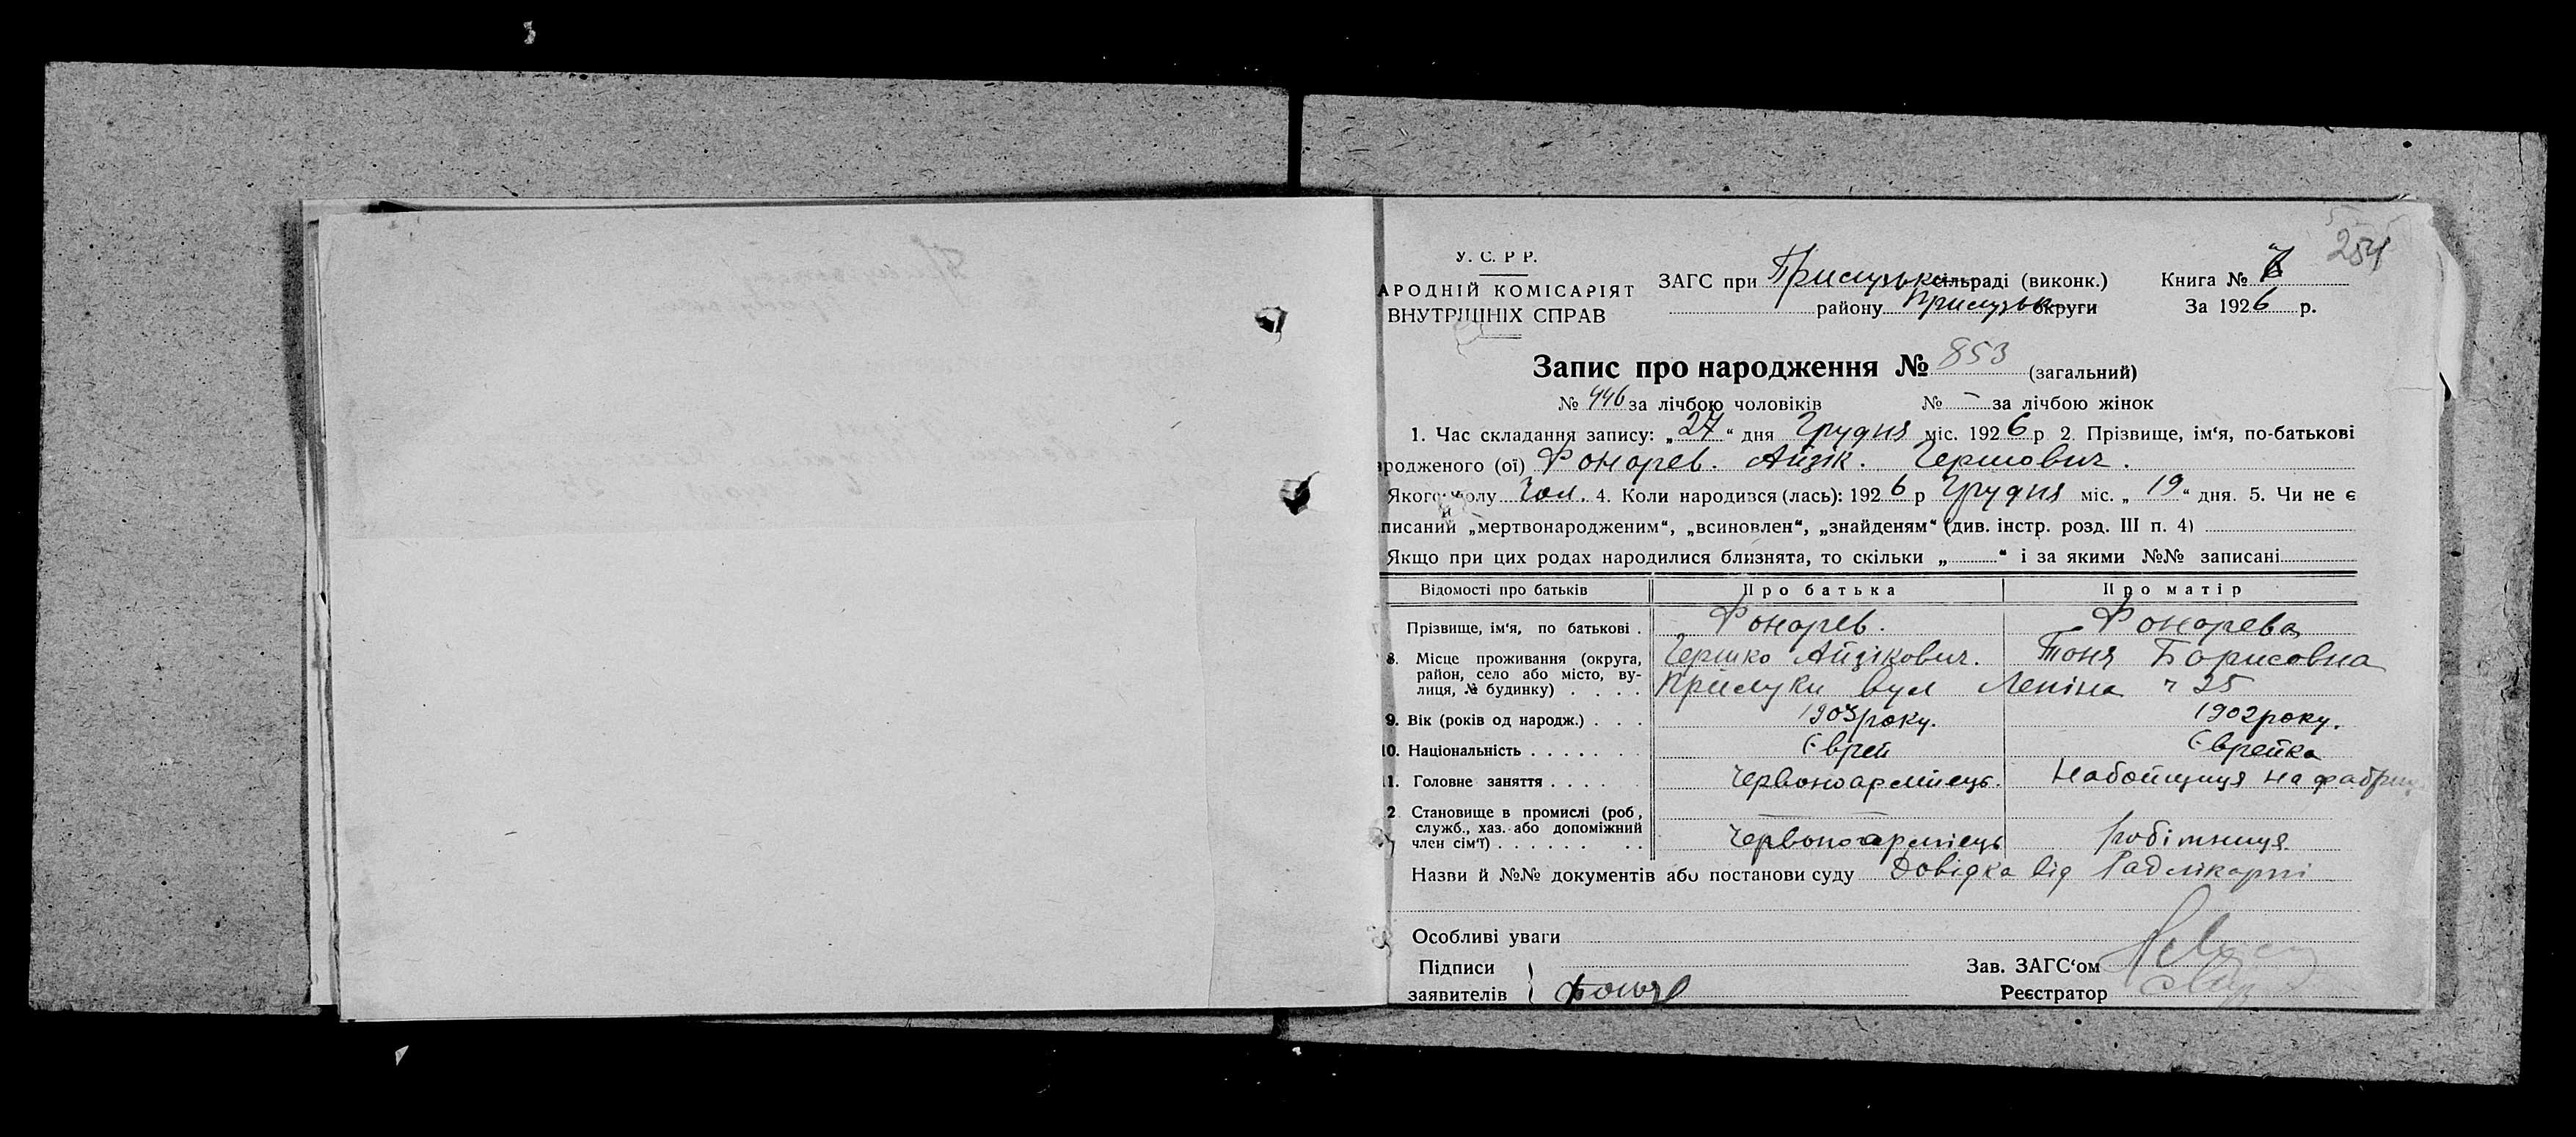 254
У. С. Р Р.
АРОДНІЙ КОМІСАРІЯТ
ВНУТРІШНІХ СПРАВ
ЗАГС при Прилузьк сільраді (виконк.)
району Прилузьк округи
Книга №
За 1926 р.
Запис про народження № 853 (загальний)
№ 446 за лічбою чоловіків № – за лічбою жінок
1. Час складання запису: „27“ дня Грудня міс. 1926 р 2. Прізвище, ім‘я, по-батькові
родженого (ої) Фонарев. Айзік. Гершович.
Якого полу Чол. 4. Коли народився (лась): 1926 р Грудня міс. „19“ дня. 5. Чи не є
писаний „мертвонародженим“, „всиновлен“, „знайденям“ (див. інстр. розд. III п. 4)
Якщо при цих родах народилися близнята, то скільки „ “ і за якими №№ записані
Відомості про батьків Про батька Про матір
Прізвище, ім‘я, по батькові . Фонарев. Фонарева
8. Місце проживання (округа, Гершко Айзікович. Тоня Борисовна
район, село або місто, ву-
лиця, № будинку) . . . . Прилуки вул Леніна ч 25
9. Вік (років од народж.) . . . 1903 року. 1902 року.
10. Національність . . . . . . . Єврей Єврейка
11. Головне заняття . . . . Червоноармієць. Набойщиця на фабриц
2 Становище в промислі (роб,
служб., хаз. або допоміжний
член сім‘ї) . . . . . . . . Червоноармієць робітниця.
Назви й №№ документів або постанови суду Довідка від Радлікарні
Особливі уваги
Підписи
заявителів
Зав. ЗАГС‘ом
Реєстратор